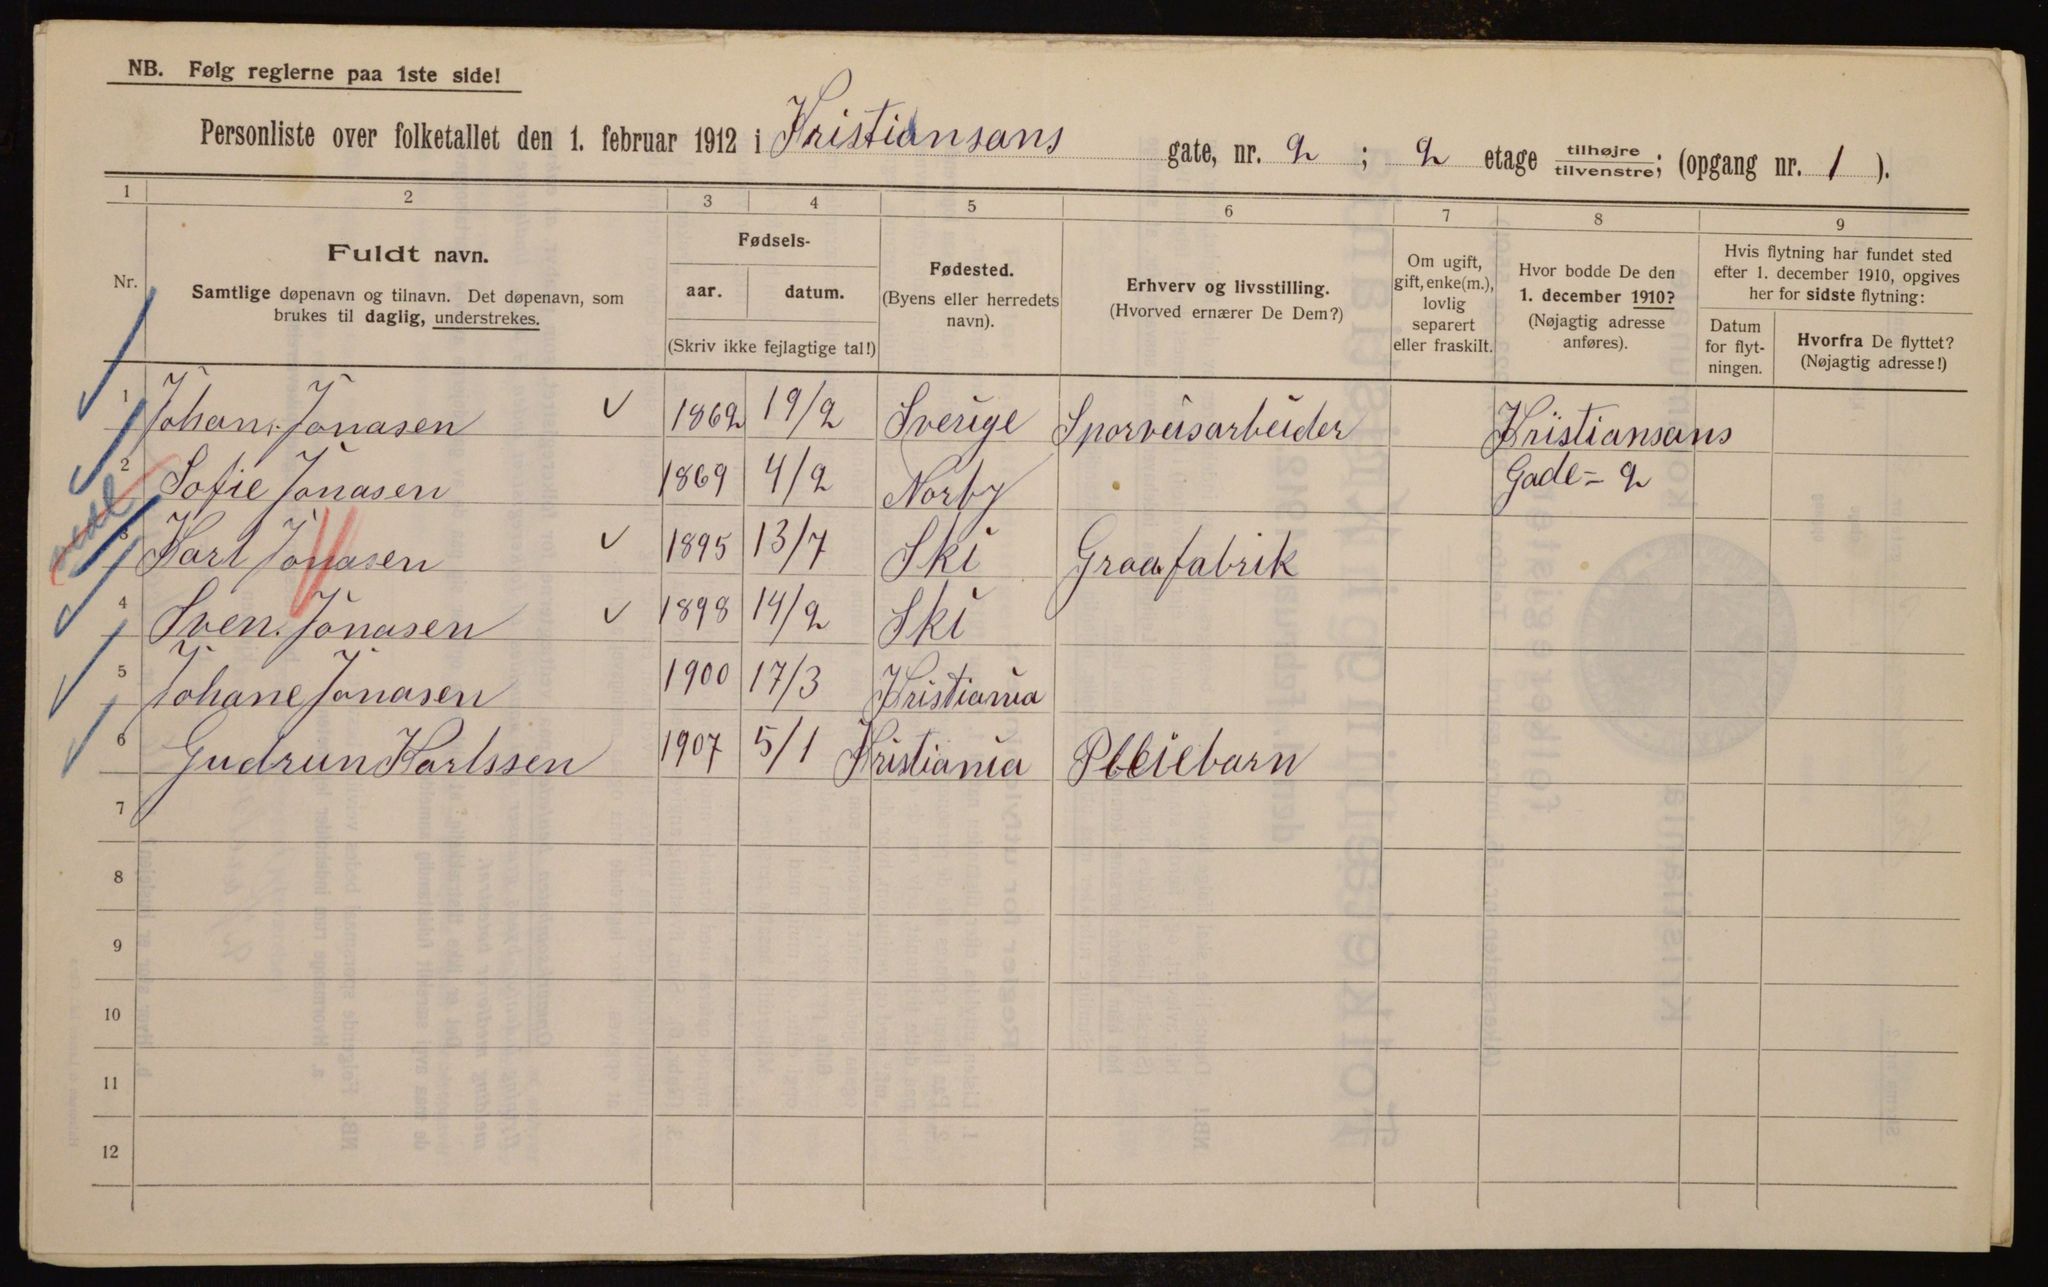 NB. Følg reglerne paa 1ste side!
Personliste over folketallet den 1. februar 1912 i Kristiansans gate, nr. 2 ; 2 etage tilhøjre / tilvenstre; (opgang nr. 1 ).
1 2 3 4 5 6 7 8 9
Nr.
Fuldt navn.
Samtlige døpenavn og tilnavn. Det døpenavn, som
brukes til daglig, understrekes.
Fødsels-
aar. datum.
(Skriv ikke fejlagtige tal!)
Fødested.
(Byens eller herredets
navn).
Erhverv og livsstilling.
(Hvorved ernærer De Dem?)
Om ugift,
gift, enke(m.),
lovlig
separert
eller fraskilt.
Hvor bodde De den
1. december 1910?
(Nøjagtig adresse
anføres).
Hvis flytning har fundet sted
efter 1. december 1910, opgives
her for sidste flytning:
Datum
for flyt-
ningen.
Hvorfra De flyttet?
(Nøjagtig adresse!)
1 Johan. Jonasen 1862 19/2 Sverige Sporveisarbeider Kristiansans
2 Sofie Jonasen 1869 4/2 Norby Gade = 2
3 Karl Jonasen 1895 13/7 Ski Graafabrik
4 Sven. Jonasen 1898 14/2 Ski
5 Johane Jonasen 1900 17/3 Kristiania
6 Gudrun Karlssen 1907 5/1 Kristiania Pleiebarn
7
8
9
10
11
12